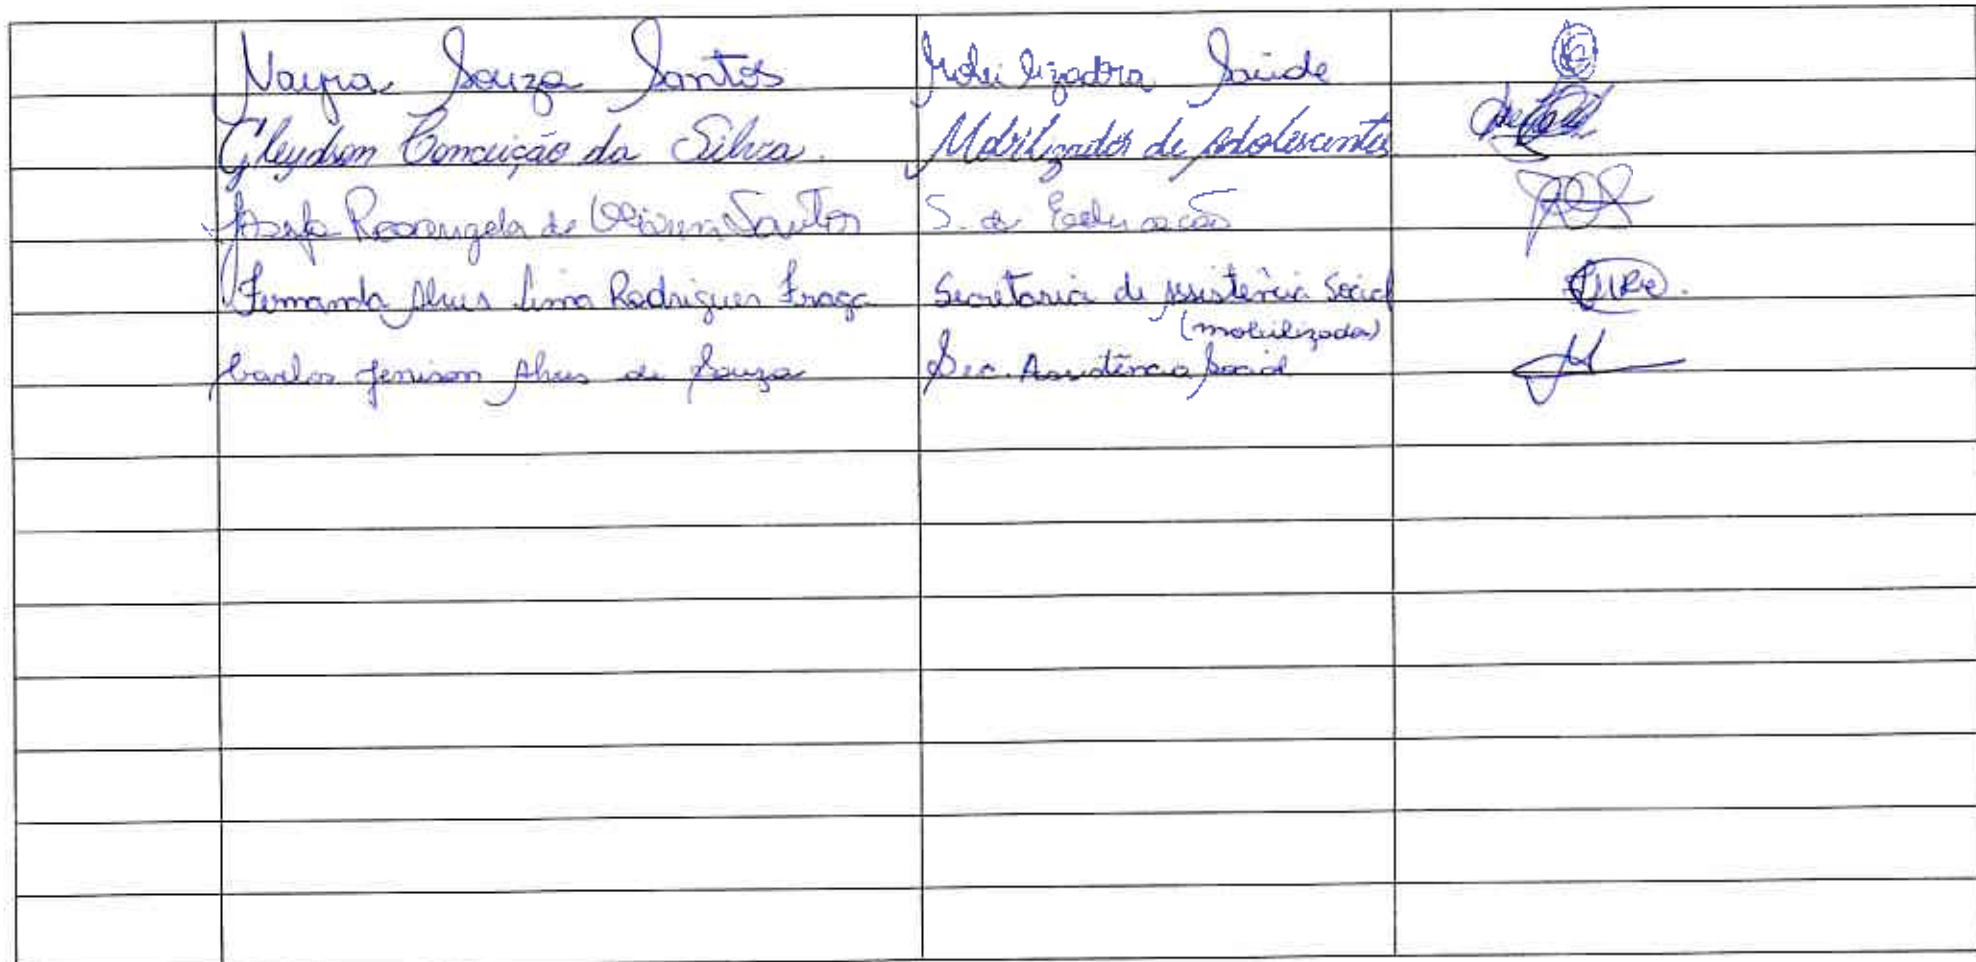 Nayra Souza Santos Mobilizadora Saúde
Gleydson Conceição da Silva. Mobilizador de Adolescentes
Josefa Rosangela de Oliveira Santos S. de Educação
Fernanda Alves Lima Rodrigues Fraga Secretaria de Assistência Social
(mobilizada)
Carlos Jenison Alves de Souza Sec. Assistência Social